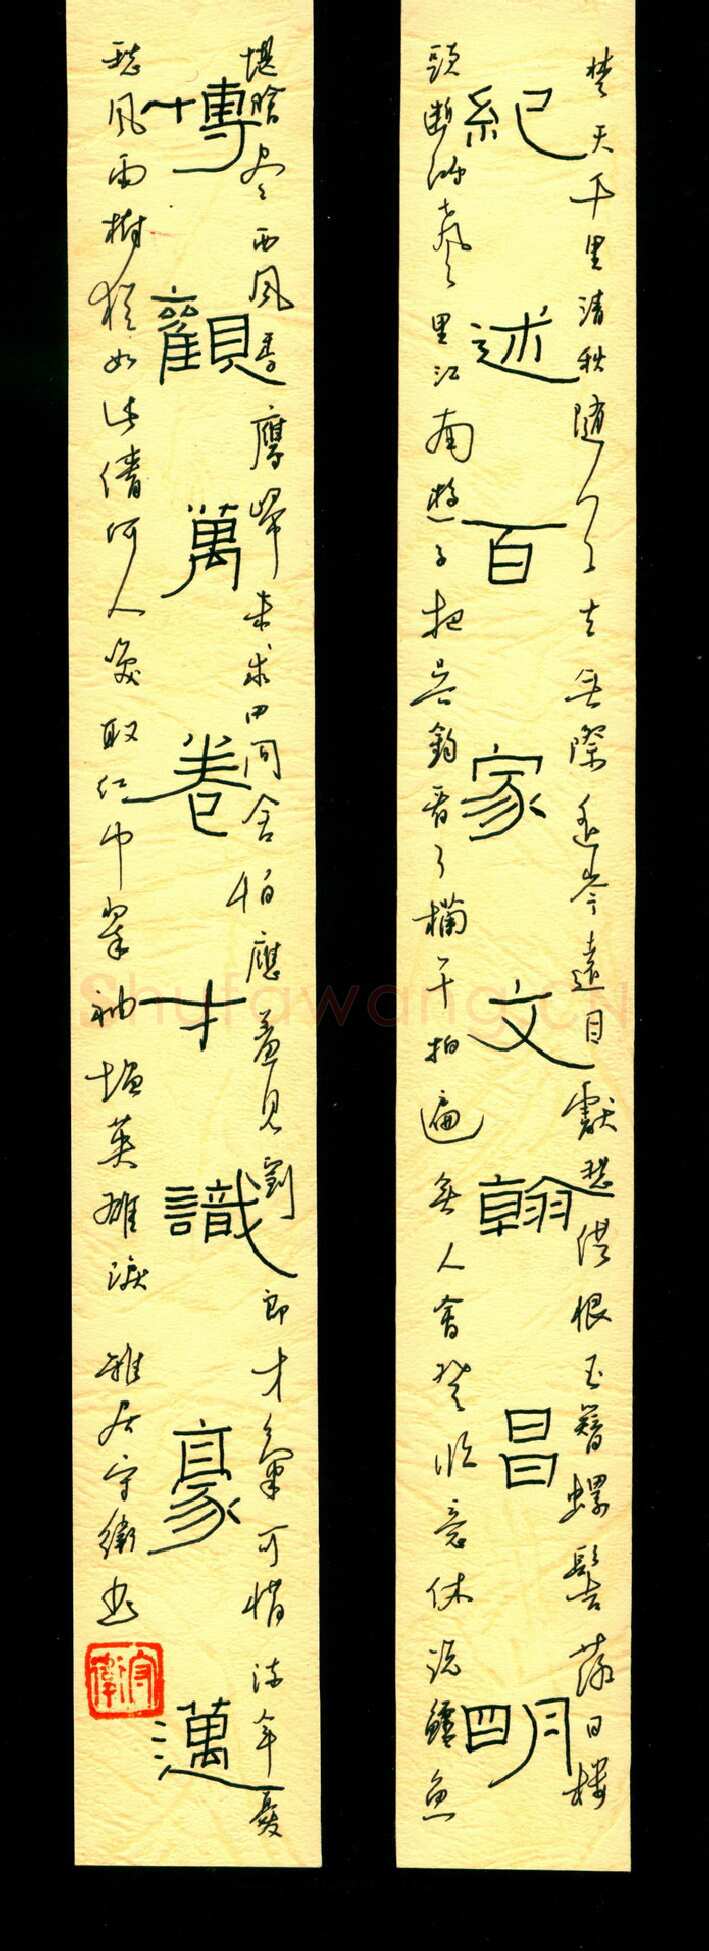 楚天千里清秋隨去無際遙岑遠目獻愁供恨玉簪螺髻落日樓
紀述百家文翰昌明
頭斷鴻聲里江南遊子把吳鈎看了欄干拍遍無人會登臨意休說鱸魚
堪膾盡西風季鷹歸未求田問舍怕應羞見劉郎才氣可惜流年憂
博觀萬卷才識豪邁
愁風雨樹猶如此倩何人喚取紅巾翠袖揾英雄淚 雅居守書
ShufaWang.CN